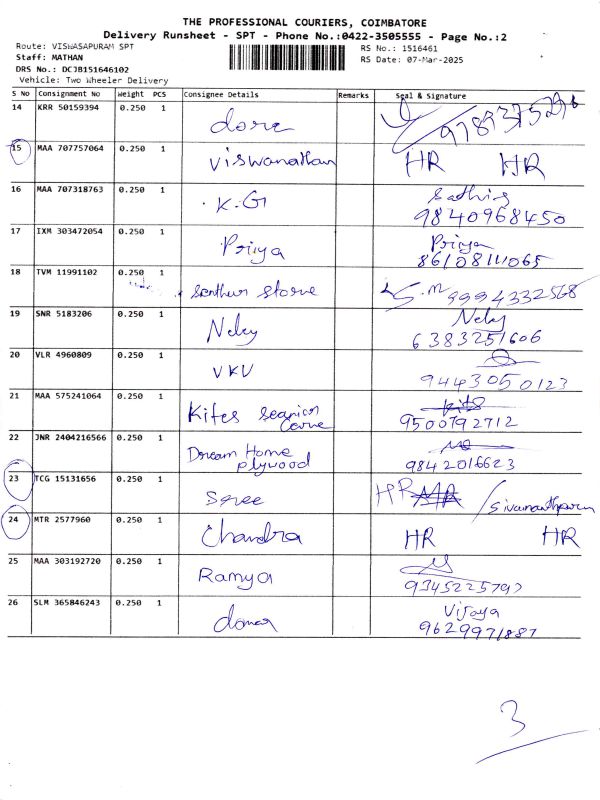 THE PROFESSIONAL COURIERS, COIMBATORE
Delivery Runsheet - SPT - Phone No.:0422-3505555 - Page No.:2
Route: VISWASAPURAM SPT
RS No.: 1516461
Staff: MATHAN
RS Date: 07-Mar-2025
DRS No.: DCJB151646102
Vehicle: Two Wheeler Delivery
S No Consignment No Weight PCS Consignee Details Remarks Seal & Signature
14 KRR 50159394 0.250 1
dore
15 MAA 707757064 0.250 1
Viswanathan HR HR
16 MAA 707318763 0.250 1
K.G Sathis
9840968450
17 IXM 303472054 0.250 1
Priya Priya
8610811065
18 TVM 11991102 0.250 1
Senthur Store S.M 9994332568
19 SNR 5183206 0.250 1
Neky Neky
6383251606
20 VLR 4960809 0.250 1
VKV
9443050123
21 MAA 575241064 0.250 1
Kites Seanior Kits
Carne 9500792712
22 JNR 2404216566 0.250 1
Dream Home
plywood 9842016623
23 TCG 15131656 0.250 1
Sree HR /Sivananthapuram
24 MTR 2577960 0.250 1
Chandra HR HR
25 MAA 303192720 0.250 1
Ramya
9345225797
26 SLM 365846243 0.250 1
Vijaya
9629971887
3